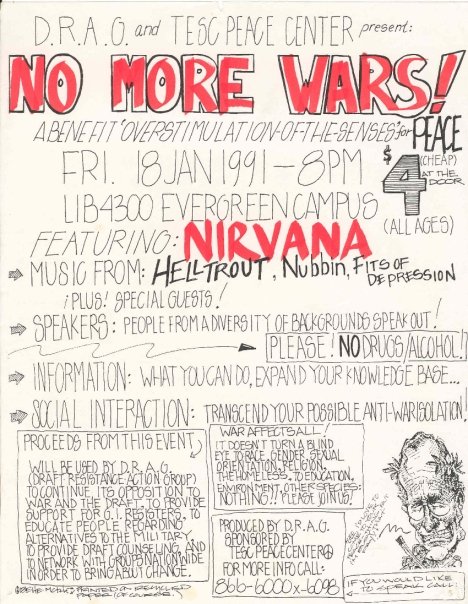 D.R.A.G. and TESC PEACE CENTER present:
NO MORE WARS!
A BENEFIT "OVERSTIMULATION-OF-THE-SENSES" for PEACE
FRI. 18 JAN 1991 – 8PM
$4 (CHEAP) AT THE DOOR
LIB 4300 EVERGREEN CAMPUS
(ALL AGES)
FEATURING: NIRVANA
MUSIC FROM: HELLTROUT, Nubbin, FITS OF DEPRESSION
¡PLUS! SPECIAL GUESTS!
SPEAKERS: PEOPLE FROM A DIVERSITY OF BACKGROUNDS SPEAK OUT!
PLEASE! NO DRUGS/ALCOHOL!
INFORMATION: WHAT YOU CAN DO, EXPAND YOUR KNOWLEDGE BASE...
SOCIAL INTERACTION: TRANSCEND YOUR POSSIBLE ANTI-WAR ISOLATION!
PROCEEDS FROM THIS EVENT
WILL BE USED BY D.R.A.G.
(DRAFT RESISTANCE ACTION GROUP)
TO CONTINUE ITS OPPOSITION TO
WAR AND THE DRAFT, TO PROVIDE
SUPPORT FOR G.I. RESISTERS, TO
EDUCATE PEOPLE REGARDING
ALTERNATIVES TO THE MILITARY,
TO PROVIDE DRAFT COUNSELING, AND
TO NETWORK WITH GROUPS NATIONWIDE
IN ORDER TO BRING ABOUT CHANGE.
WAR AFFECTS ALL!
IT DOESN'T TURN A BLIND
EYE TO RACE, GENDER, SEXUAL
ORIENTATION, RELIGION,
THE HOMELESS, TO EDUCATION,
ENVIRONMENT, OTHER SPECIES:
NOTHING!! PLEASE JOIN US!
PRODUCED BY D.R.A.G.
SPONSORED BY
TESC PEACE CENTER
FOR MORE INFO CALL:
866-6000 x-6098
PRINTED ON RECYCLED
PAPER (OF COURSE)
IF YOU WOULD LIKE
TO SPEAK, CALL